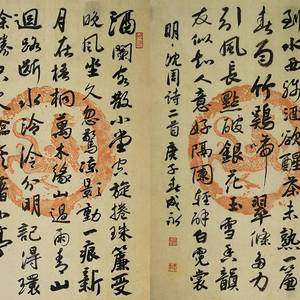 熟一簾
春雨竹鷄啼 翠條多力
引風長點破銀花玉雪香韻
友似知人意好隔闌輕解白霓裳
明·沈周詩二首 庚子春成永
酒闌客散小堂空旋捲珠簾受
晚風坐久忽驚涼影動一痕新
月在梧桐萬木緣山過雨青山
迴路斷水泠泠分明記得環
滁勝著小亭